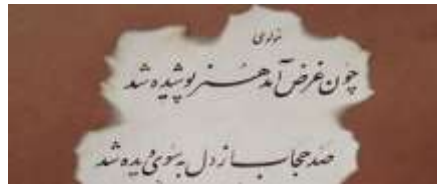 مولوی
چون غرض آمد هنر پوشیده شد
صد حجاب از دل به سوی دیده شد